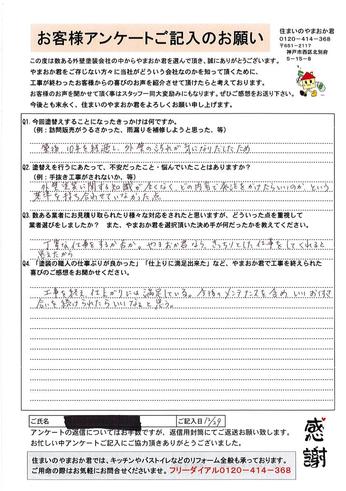 お客様アンケートご記入のお願い
住まいのやまおか君
0120-414-368
〒651-2117
神戸市西区北別府
5-15-8
この度は数ある外壁塗装会社の中からやまおか君を選んで頂き、誠にありがとうございます。
やまおか君をご存じない方々に当社がどういう会社なのかを知って頂くために、
工事が終わったお客様からの喜びのお声を紹介させて頂けたらと考えております。
お客様のお声を聞かせて頂く事はスタッフ一同大変励みにもなります。ぜひご感想をお送り下さい。
今後とも末永く、住まいのやまおか君をよろしくお願い申し上げます。
Q1. 今回塗替えすることになったきっかけは何ですか。
(例:訪問販売がうるさかった、雨漏りを補修しようと思った、等)
築後、10年を経過し、外壁の汚れが気になりだしたため
Q2. 塗替えを行うにあたって、不安だったこと・悩んでいたことはありますか?
(例:手抜き工事がされないか、等)
外壁塗装に関する知識が全くなく、どの内容で発注をかけたらいいのか、という
基準を持ち合わせていなかった点
Q3. 数ある業者にお見積り取られたり様々な対応をされたと思いますが、どういった点を重視して
業者選びをしましたか? また、やまおか君を選択頂いた決め手が何だったかを教えてください。
丁寧な仕事をするか否か。やまおか君なら、きっちりとした仕事をしてくれると
思えたから
Q4.「塗装の職人の仕事ぶりが良かった」「仕上りに満足出来た」など、やまおか君で工事を終えられた
喜びのご感想をお聞かせください。
工事を終え、仕上がりには満足している。今後のメンテナンスを含め、いいおつき
合いを続けられたらいいなと思う。
ご氏名
ご記入日 12/29
アンケートの返信についてはお手数ですが、返信用封筒にてご返送お願い致します。
お忙しい中アンケートにご協力頂きありがとうございました。
感謝
住まいのやまおか君では、キッチンやバストイレなどのリフォーム全般も承っております。
ご用命の際はお気軽にお問合せくださいませ。フリーダイアル0120-414-368